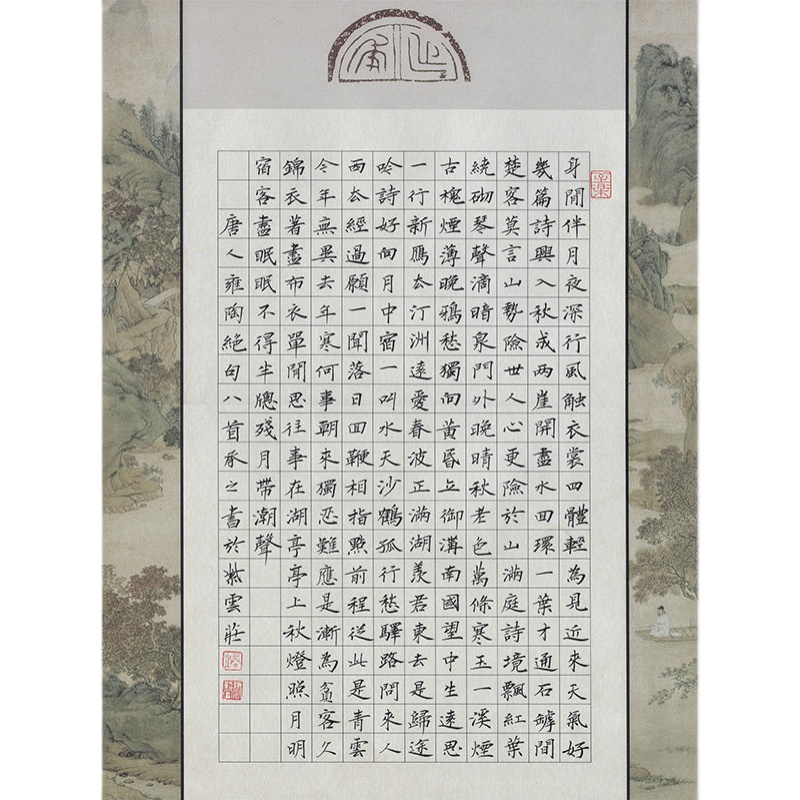 身閒伴月夜深行風触衣裳四體輕為見近來天氣好
幾篇詩興入秋成兩崖開盡水回環一葉才通石罅間
楚客莫言山勢險世人心更險於山滿庭詩境飄紅葉
繞砌琴聲滴暗泉門外晚晴秋老色萬條寒玉一溪煙
古槐煙薄晚鴉愁獨向黃昏立御溝南國望中生遠思
一行新鴈去汀洲遠愛春波正滿湖羨君東去是歸途
吟詩好向月中宿一叫水天沙鶴孤行愁驛路問來人
西去經過願一聞落日回鞭相指點前程從此是青雲
今年無異去年寒何事朝來獨忍難應是漸為貧客久
錦衣著盡布衣單閒思往事在湖亭亭上秋燈照月明
宿客盡眠眠不得半牕殘月帶潮聲
唐人雍陶絕句八首承之書於紫雲莊